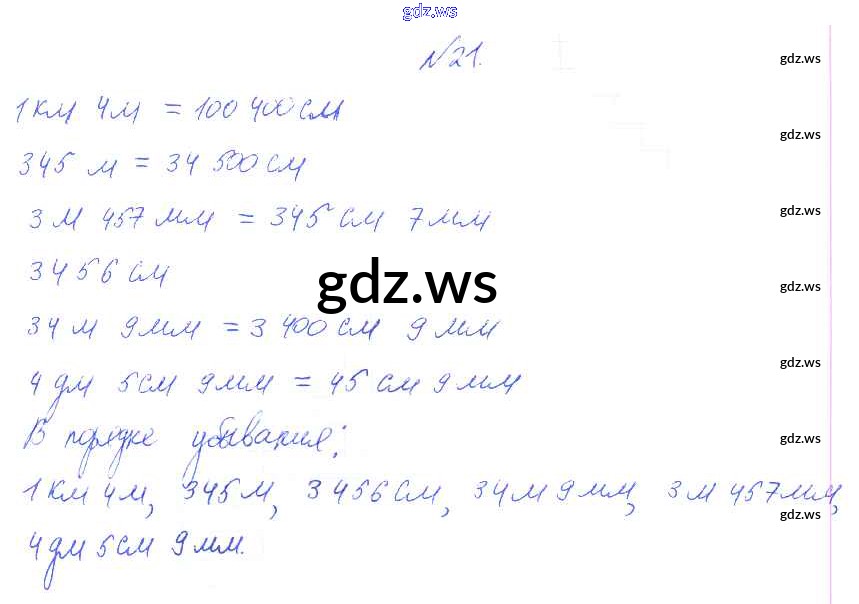 gdz.ws
№21.
gdz.ws
1 км 4 м = 100 400 см
gdz.ws
345 м = 34 500 см
gdz.ws
3 м 457 мм = 345 см 7 мм
3456 см
gdz.ws
gdz.ws
34 м 9 мм = 3 400 см 9 мм
gdz.ws
4 дм 5 см 9 мм = 45 см 9 мм
В порядке убывания:
gdz.ws
1 км 4 м, 345 м, 3 456 см, 34 м 9 мм, 3 м 457 мм,
gdz.ws
4 дм 5 см 9 мм.